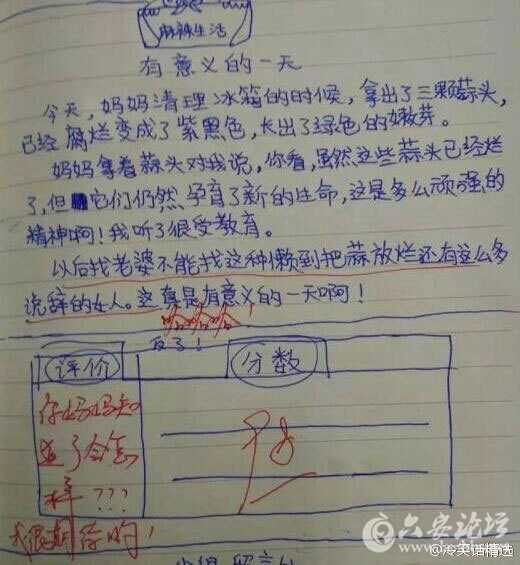 麻辣生活
有意义的一天
今天，妈妈清理冰箱的时候，拿出了三颗蒜头，
已经腐烂变成了紫黑色，长出了绿色的嫩芽。
妈妈拿着蒜头对我说，你看，虽然这些蒜头已经烂
了，但它们仍然孕育了新的生命，这是多么顽强的
精神啊！我听了很受教育。
以后找老婆不能找这种懒到把蒜放烂还有这么多
说辞的女人。这真是有意义的一天啊！
哈哈哈
反了！
评价
分数
你妈妈知
道了会怎
样???
我很期待哟！
六安论坛
@冷笑话精选